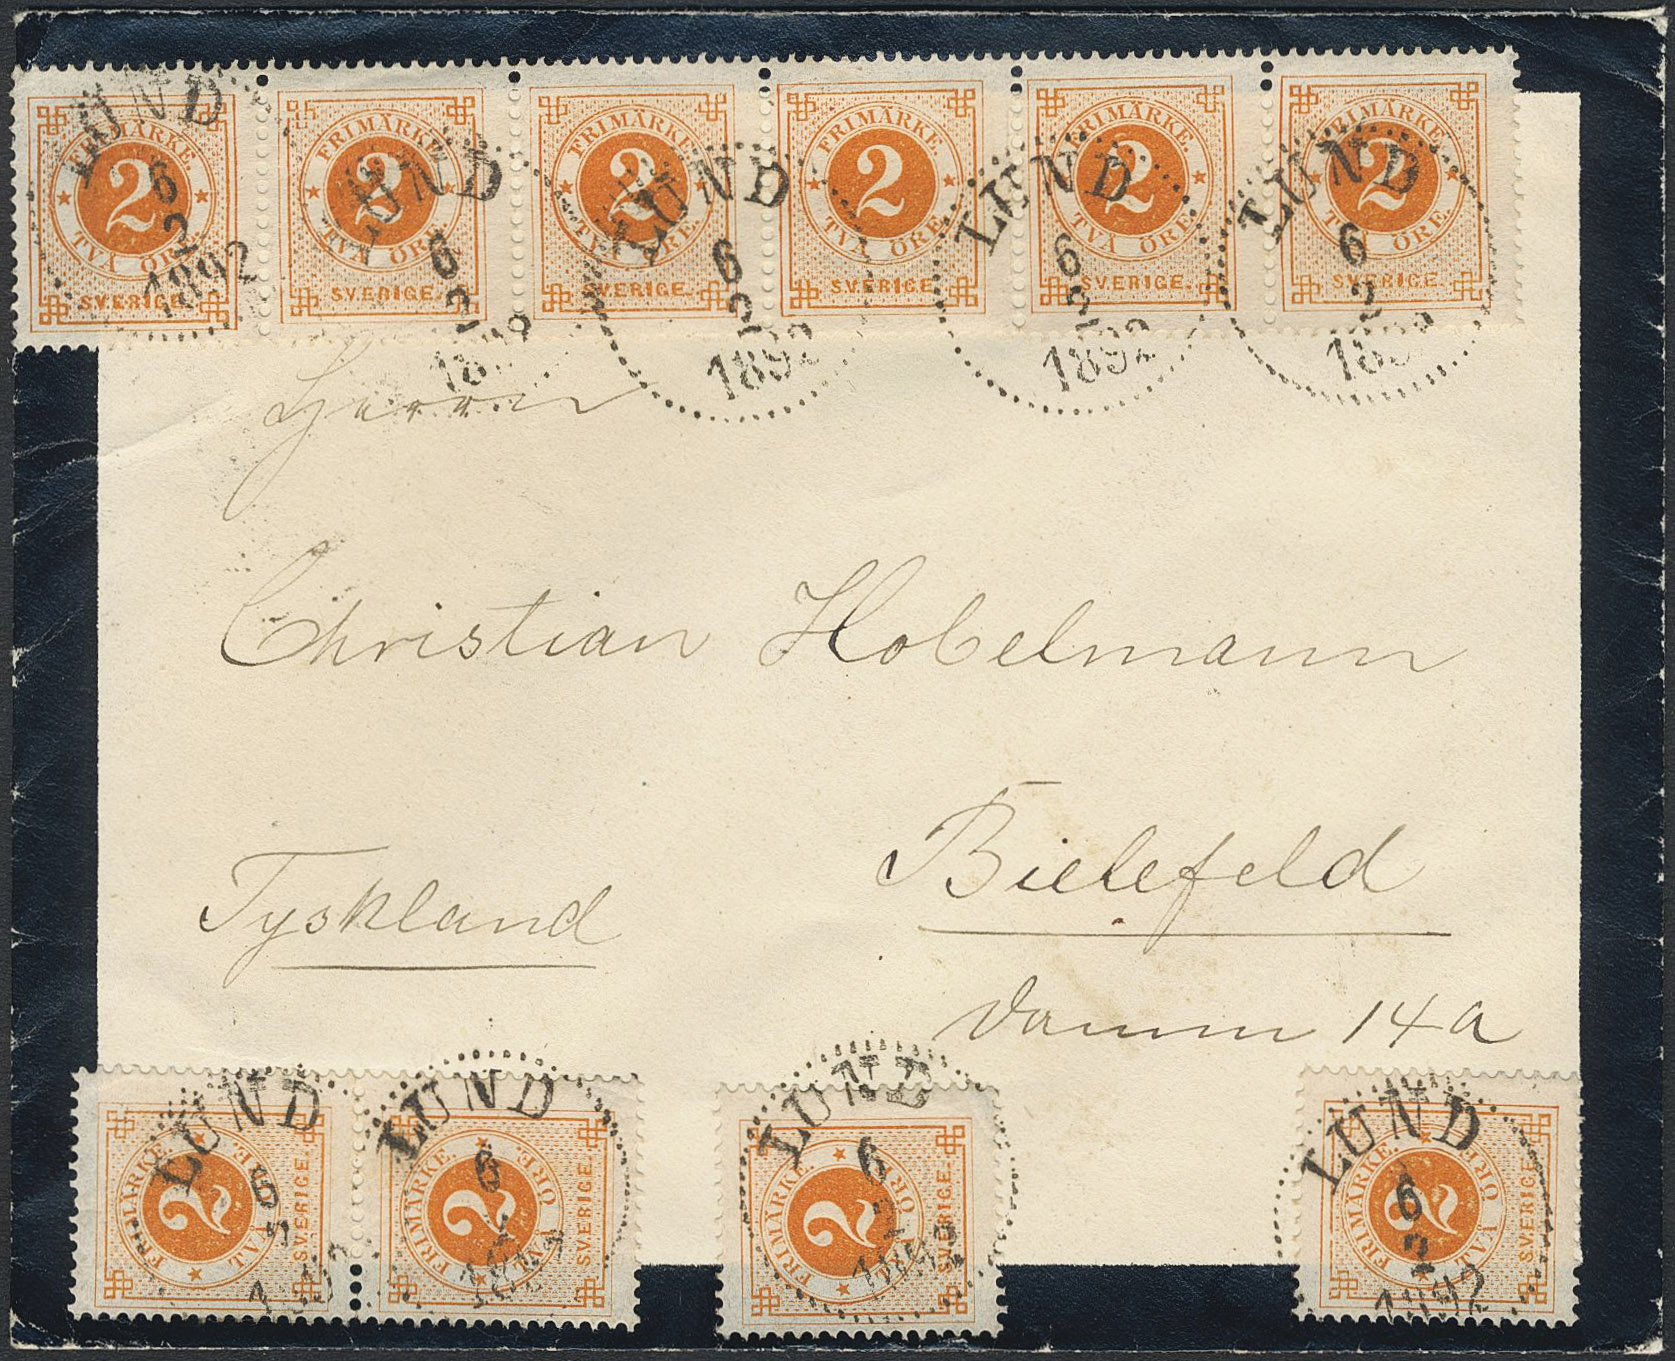 FRIMÄRKE. 2 TVÅ ÖRE. SVERIGE.
FRIMÄRKE. 2 TVÅ ÖRE. SVERIGE.
FRIMÄRKE. 2 TVÅ ÖRE. SVERIGE.
FRIMÄRKE. 2 TVÅ ÖRE. SVERIGE.
FRIMÄRKE. 2 TVÅ ÖRE. SVERIGE.
FRIMÄRKE. 2 TVÅ ÖRE. SVERIGE.
LUND 6 2 1892
LUND 6 2 189
LUND 6 2 1892
LUND 6 2 1892
LUND 6 2 189
Herren
Christian Hobelmann
Bielefeld
Tyskland
Damm 14a
FRIMÄRKE. 2 TVÅ SVERIGE.
FRIMÄRKE. 2 TVÅ ÖRE. SVERIGE.
FRIMÄRKE. 2 ÖRE. SVERIGE.
FRIMÄRKE. 2 TVÅ ÖRE. SVERIGE.
LUND 6 2
LUND 6
LUND 6 2 1892
LUND 6 2 1892